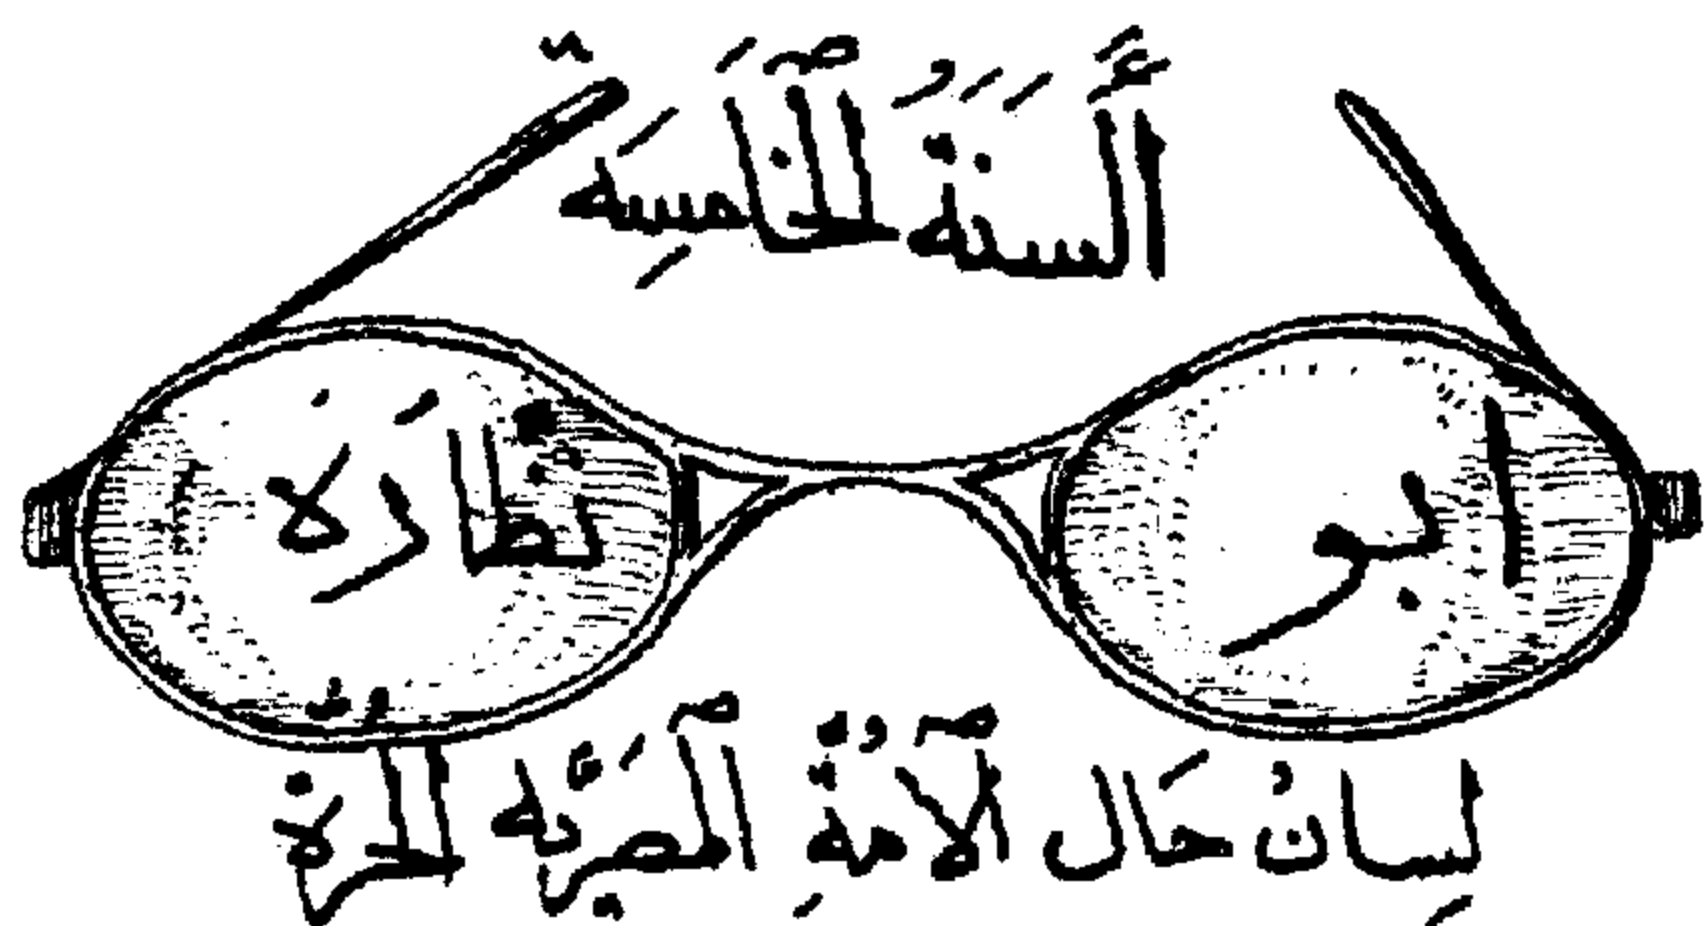 أَلسَّنَةُ ٱلْخَامِسَه
ابو نَظَّارَة
لِسانُ حَال ٱلأُمَّةِ ٱلمصرِيَّه ٱلحُرَّة